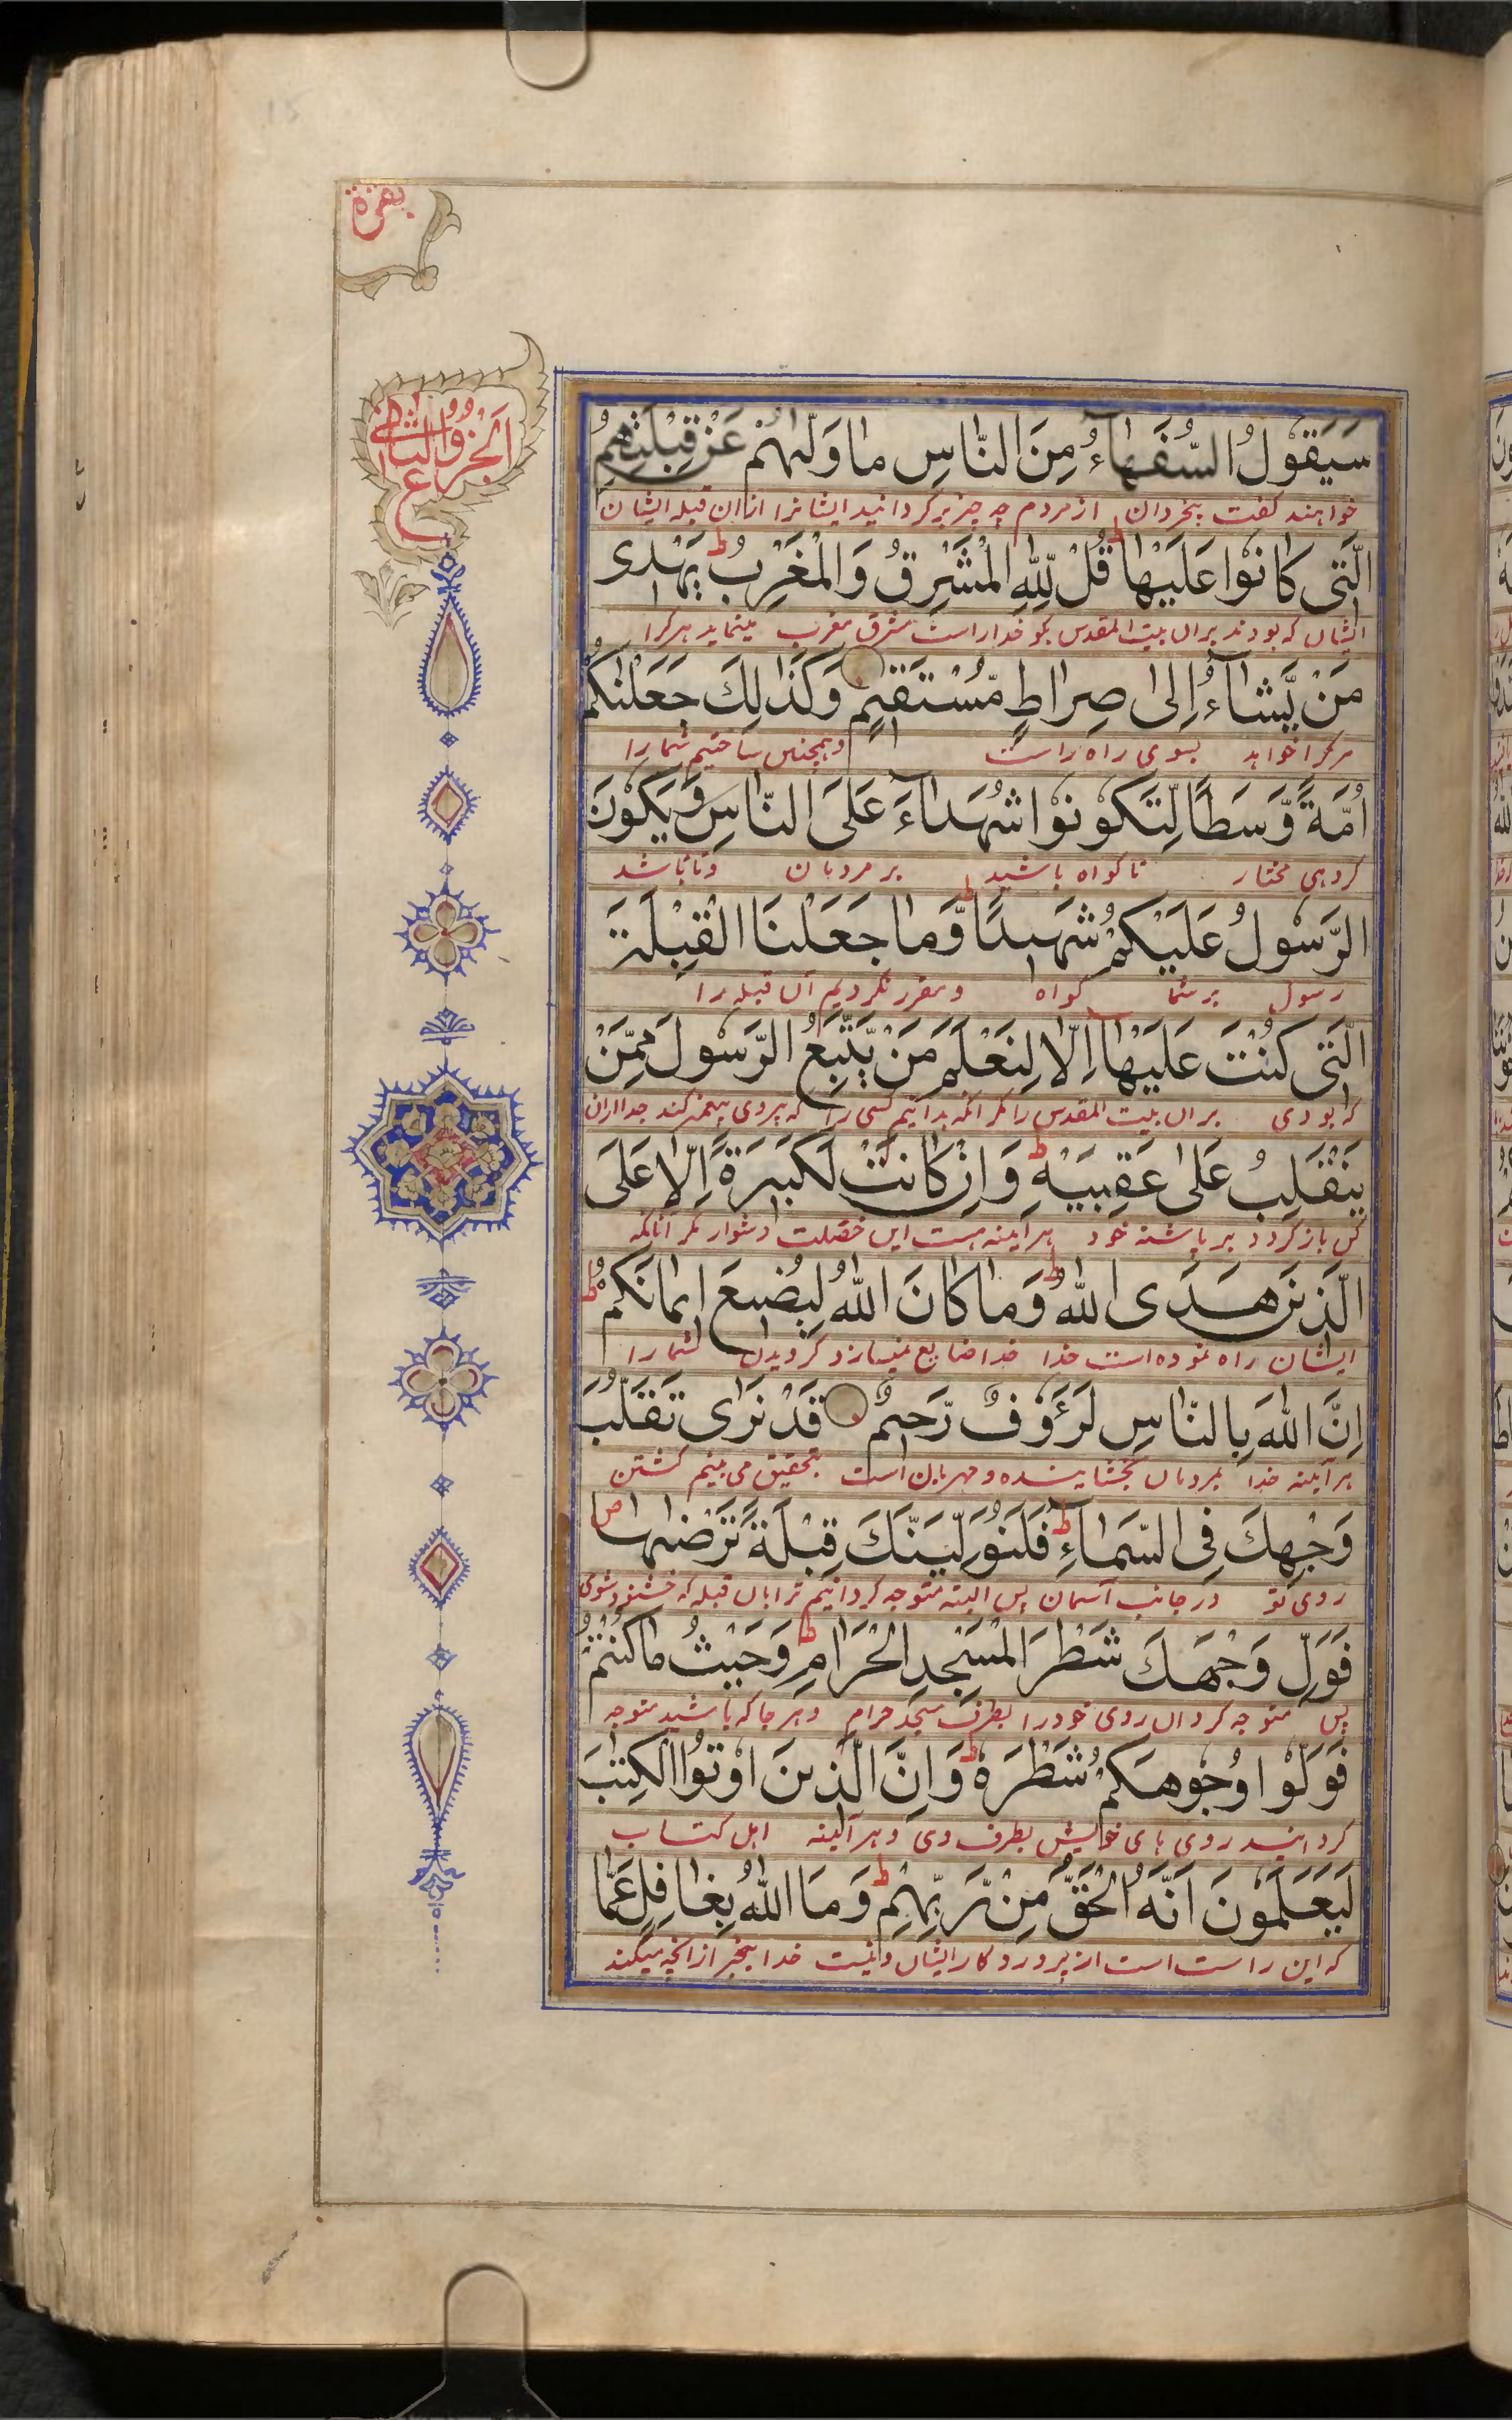 بقرة
الجزؤ الثانی
ع
سَيَقُولُ السُّفَهَاءُ مِنَ النَّاسِ مَا وَلّٰىهُمْ عَنْ قِبْلَتِهِمُ
خواهند کفت بیخردان از مردم چه چیز برکردانید ایشانرا ازان قبله ایشان
الَّتِی كَانُوْا عَلَيْهَا ط قُلْ لِلّٰهِ الْمَشْرِقُ وَالْمَغْرِبُ ط يَهْدِی
ایشان که بودند بران بیت المقدس بکو خدا راست مشرق مغرب مینماید هرکرا
مَنْ يَّشَآءُ اِلٰی صِرَاطٍ مُّسْتَقِيْمٍ وَكَذٰلِكَ جَعَلْنٰكُمْ
هرکرا خواهد بسوی راه راست وهمچنین ساختیم شما را
اُمَّةً وَّسَطًا لِّتَكُوْنُوْا شُهَدَآءَ عَلَی النَّاسِ وَيَكُوْنَ
کروهی مختار تا کواه باشید بر مردمان وتا باشد
الرَّسُوْلُ عَلَيْكُمْ شَهِيْدًا ط وَّمَا جَعَلْنَا الْقِبْلَةَ
رسول بر شما کواه ومقرر نکردیم آن قبله را
الَّتِی كُنْتَ عَلَيْهَآ اِلَّا لِنَعْلَمَ مَنْ يَّتَّبِعُ الرَّسُوْلَ مِمَّنْ
که بودی بران بیت المقدس را مکر انکه بدانیم کسی را که پیروی پیغمبر کند جدا ازان
يَنْقَلِبُ عَلٰی عَقِبَيْهِ ط وَاِنْ كَانَتْ لَكَبِيْرَةً اِلَّا عَلَی
کس بازکردد بر پاشنه خود هرآینه هست این خصلت دشوار مکر آنانکه
الَّذِيْنَ هَدَی اللّٰهُ ط وَمَا كَانَ اللّٰهُ لِيُضِيْعَ اِيْمَانَكُمْ ط
ایشان راه نموده است خدا خدا ضایع نمیسازد کرویدن شما را
اِنَّ اللّٰهَ بِالنَّاسِ لَرَءُوْفٌ رَّحِيْمٌ قَدْ نَرٰی تَقَلُّبَ
هرآینه خدا بمردمان بخشاینده ومهربان است بتحقیق می بینم کشتن
وَجْهِكَ فِی السَّمَآءِ ط فَلَنُوَلِّيَنَّكَ قِبْلَةً تَرْضٰىهَا ص
روی تو در جانب آسمان پس البته متوجه کردانیم ترا بان قبله که خشنود شوی
فَوَلِّ وَجْهَكَ شَطْرَ الْمَسْجِدِ الْحَرَامِ ط وَحَيْثُ مَا كُنْتُمْ
پس متوجه کردان روی خود را بطرف مسجد حرام وهرجا که باشید متوجه
فَوَلُّوْا وُجُوْهَكُمْ شَطْرَهٗ ط وَاِنَّ الَّذِيْنَ اُوْتُوا الْكِتٰبَ
کردانید روی های خویش بطرف وی وهرآینه اهل کتاب
لَيَعْلَمُوْنَ اَنَّهُ الْحَقُّ مِنْ رَّبِّهِمْ ط وَمَا اللّٰهُ بِغَافِلٍ عَمَّا
که این راست است از پروردکار ایشان ونیست خدا بیخبر از انچه میکنند